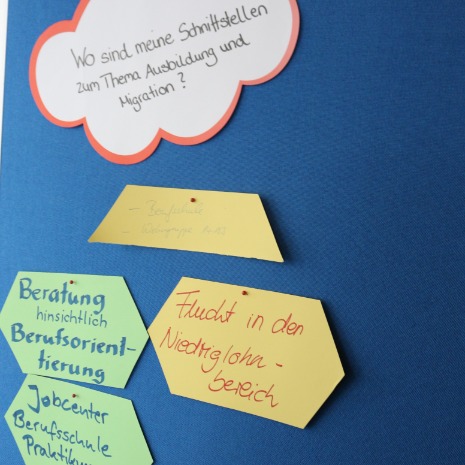 Wo sind meine Schnittstellen
zum Thema Ausbildung und
Migration?
- Berufsschule
-
Beratung
hinsichtlich
Berufsorient-
tierung
Flucht in den
Niedriglohn-
bereich
Jobcenter
Berufsschule